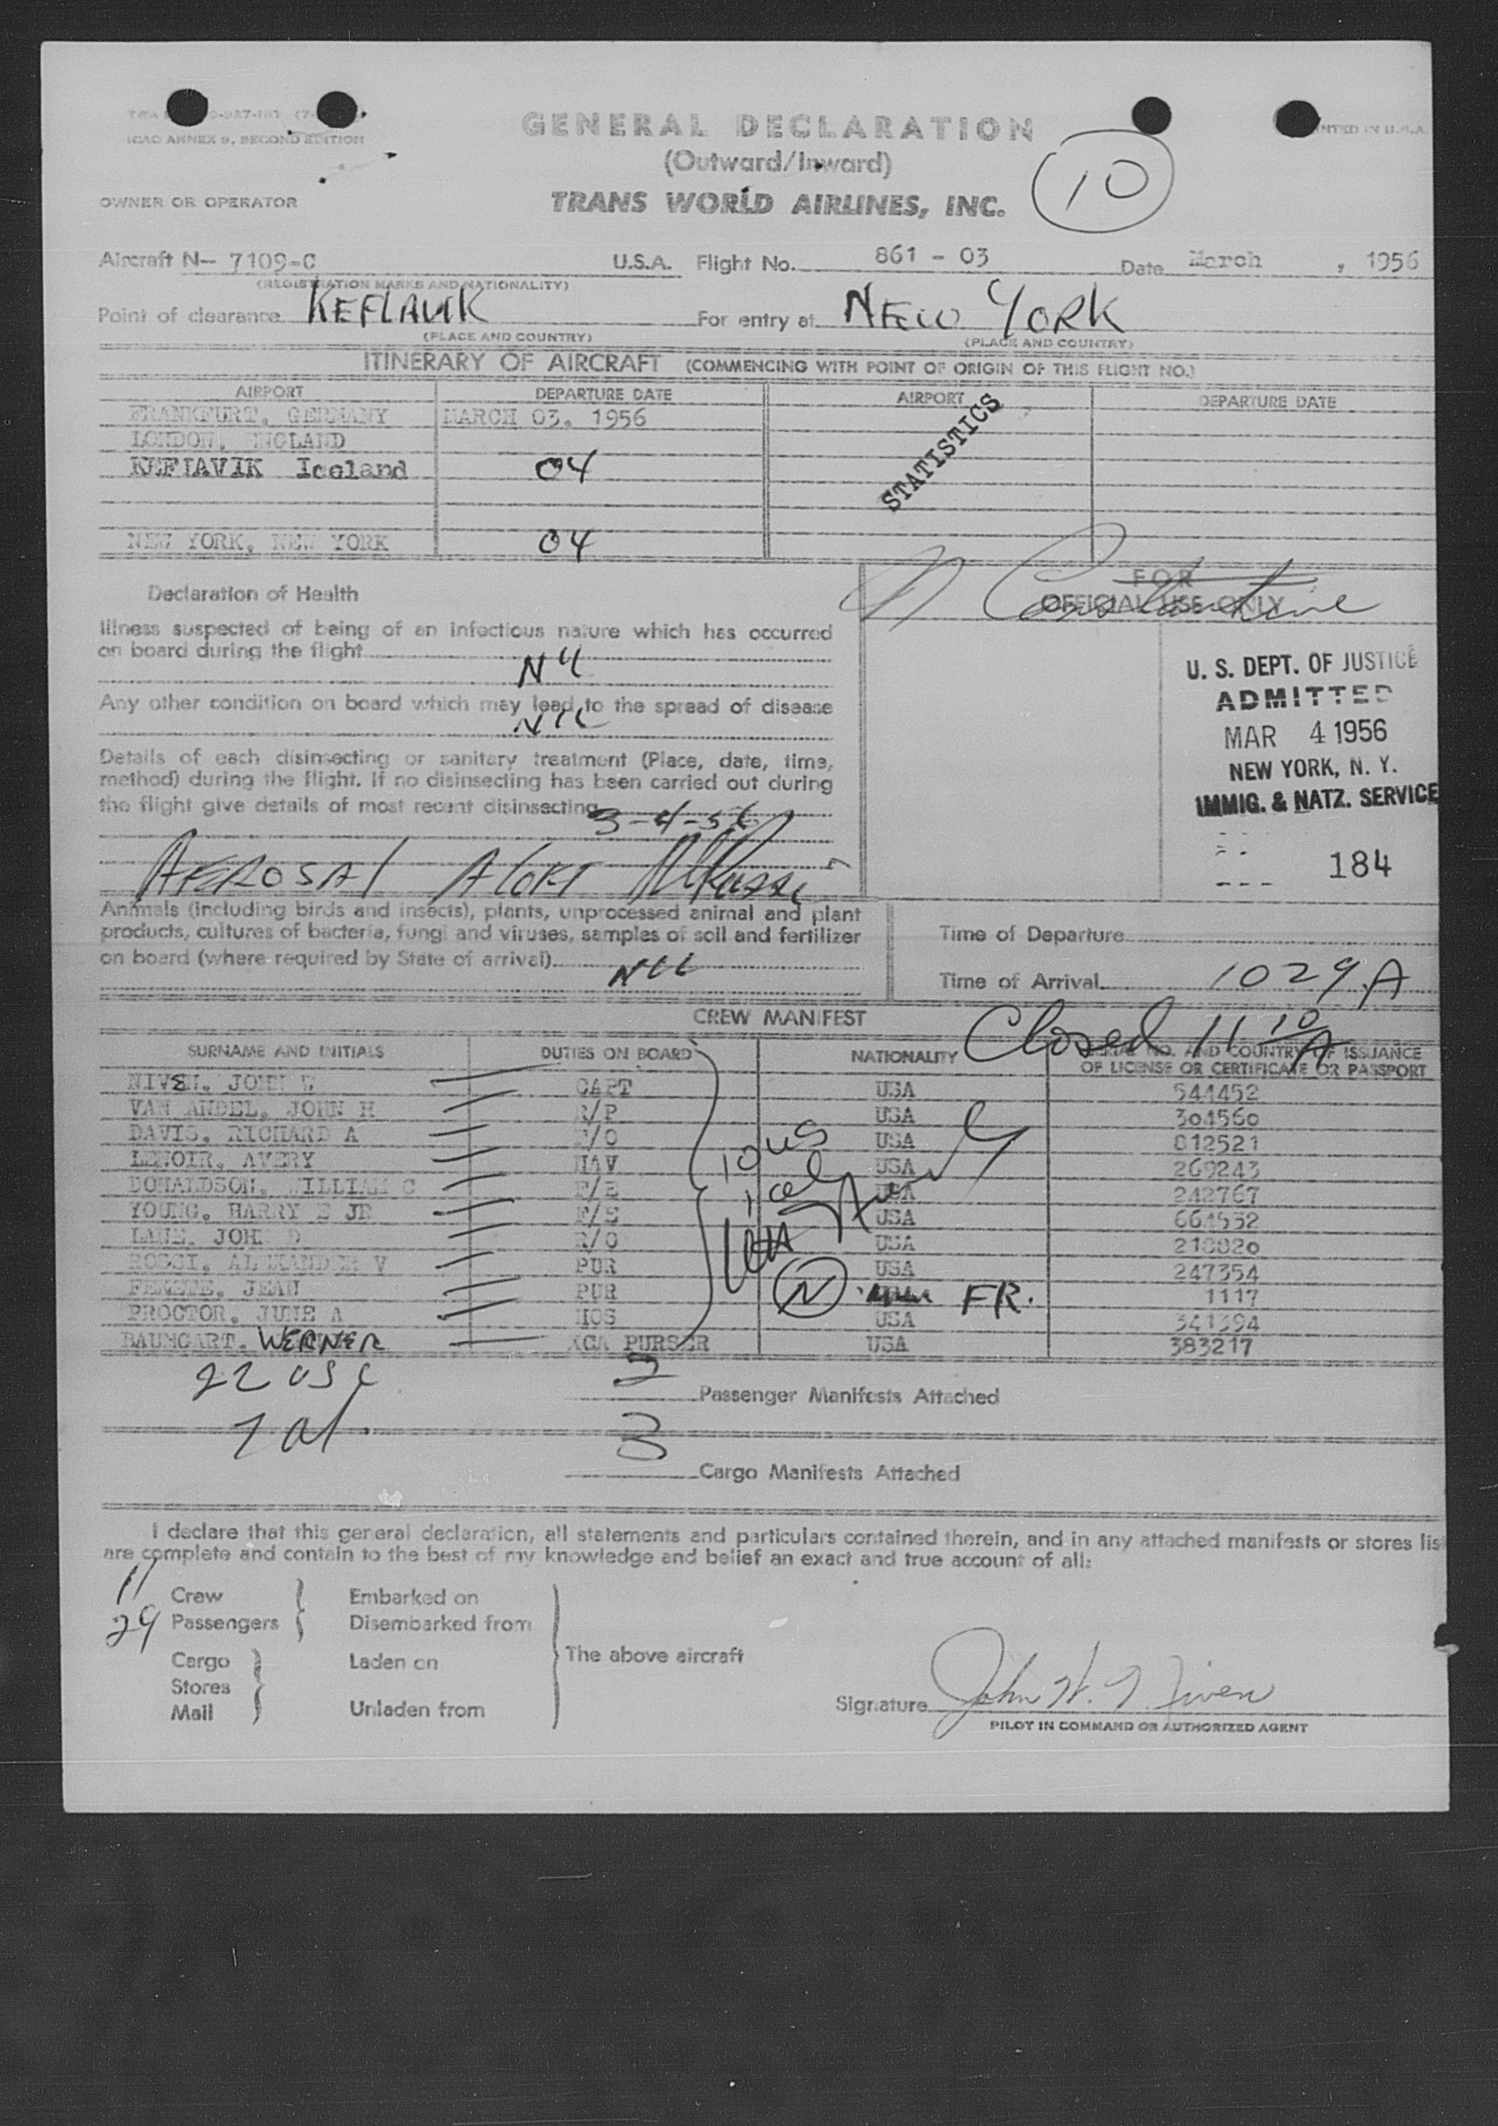 ICAO ANNEX 9, SECOND EDITION
GENERAL DECLARATION
(Outward/Inward)
10
OWNER OR OPERATOR
TRANS WORLD AIRLINES, INC.
Aircraft N- 7109-C U.S.A. Flight No. 861 - 03 Date March , 1956
(REGISTRATION MARKS AND NATIONALITY)
Point of clearance KEFLAVIK For entry at NEW YORK
(PLACE AND COUNTRY) (PLACE AND COUNTRY)
ITINERARY OF AIRCRAFT (COMMENCING WITH POINT OF ORIGIN OF THIS FLIGHT NO.)
AIRPORT DEPARTURE DATE AIRPORT DEPARTURE DATE
FRANKFURT, GERMANY MARCH 03, 1956
LONDON, ENGLAND
KEFLAVIK Iceland 04
STATISTICS
NEW YORK, NEW YORK 04
Declaration of Health
FOR
OFFICIAL USE ONLY
N Constantine
Illness suspected of being of an infectious nature which has occurred
on board during the flight
NIL
Any other condition on board which may lead to the spread of disease
NIL
U. S. DEPT. OF JUSTICE
ADMITTED
MAR 4 1956
NEW YORK, N. Y.
IMMIG. & NATZ. SERVICE
184
Details of each disinsecting or sanitary treatment (Place, date, time,
method) during the flight. If no disinsecting has been carried out during
the flight give details of most recent disinsecting 3-4-56
AEROSAL ALOFT
Animals (including birds and insects), plants, unprocessed animal and plant
products, cultures of bacteria, fungi and viruses, samples of soil and fertilizer
on board (where required by State of arrival) NIL
Time of Departure
Time of Arrival 1029 A
CREW MANIFEST
Closed 11 10 A
SURNAME AND INITIALS DUTIES ON BOARD NATIONALITY SERIAL NO. AND COUNTRY OF ISSUANCE
OF LICENSE OR CERTIFICATE OR PASSPORT
NIVEN, JOHN W CAPT USA 544452
VAN ANDEL, JOHN H R/P USA 304560
DAVIS, RICHARD A F/O USA 812521
LENOIR, AVERY NAV USA 269243
DONALDSON, WILLIAM C F/E USA 242767
YOUNG, HARRY E JR F/E USA 661532
LANE, JOHN D R/O USA 218820
ROSSI, ALEXANDER V PUR USA 247354
JEAN PUR N FR. 1117
PROCTOR, JUNE A HOS USA 341394
BAUMGART, WERNER PURSER USA 383217
10 US
22 USC
2 Passenger Manifests Attached
7 al.
3 Cargo Manifests Attached
I declare that this general declaration, all statements and particulars contained therein, and in any attached manifests or stores lis
are complete and contain to the best of my knowledge and belief an exact and true account of all:
11 Crew Embarked on
29 Passengers Disembarked from
Cargo Laden on
Stores
Mail Unladen from
The above aircraft
Signature John W. Niven
PILOT IN COMMAND OR AUTHORIZED AGENT